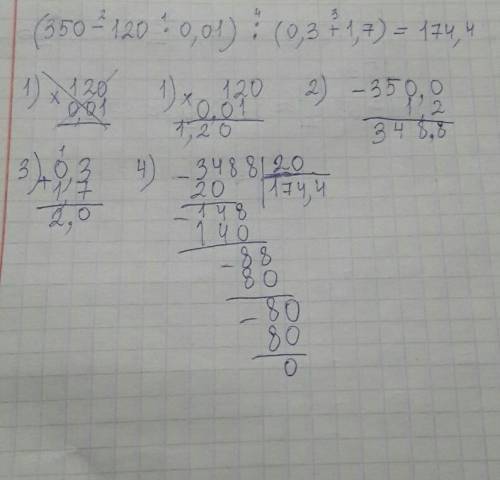 (350 - 120 · 0,01) : (0,3 + 1,7) = 174,4
2 1 4 3
1) × 120
0,01
1) × 120
0,01
1,20
2) - 350,0
1,2
348,8
3) + 0,3
1
1,7
2,0
4) - 3488 | 20
20 | 174,4
- 148
140
- 88
80
- 80
80
0